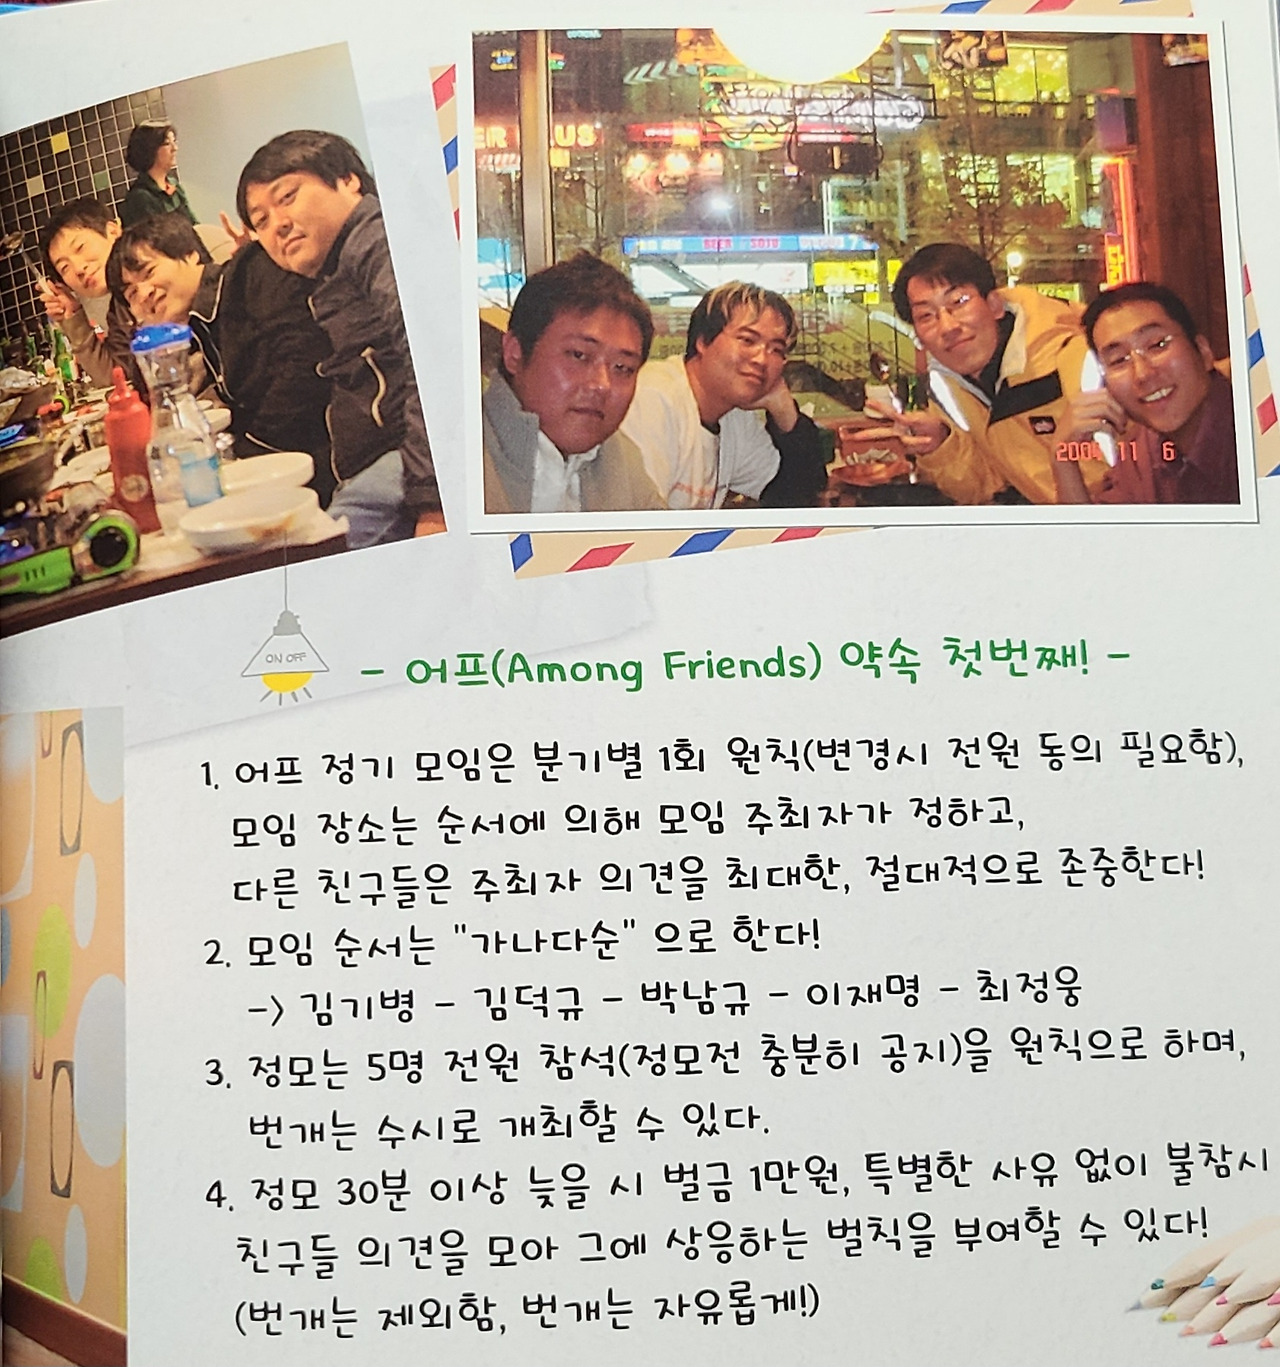 ER
US
BEER SOJU
2004 11 6
ON OFF
- 어프(Among Friends) 약속 첫번째! -
1. 어프 정기 모임은 분기별 1회 원칙(변경시 전원 동의 필요함),
모임 장소는 순서에 의해 모임 주최자가 정하고,
다른 친구들은 주최자 의견을 최대한, 절대적으로 존중한다!
2. 모임 순서는 "가나다순" 으로 한다!
-> 김기병 - 김덕규 - 박남규 - 이재명 - 최정웅
3. 정모는 5명 전원 참석(정모전 충분히 공지)을 원칙으로 하며,
번개는 수시로 개최할 수 있다.
4. 정모 30분 이상 늦을 시 벌금 1만원, 특별한 사유 없이 불참시
친구들 의견을 모아 그에 상응하는 벌칙을 부여할 수 있다!
(번개는 제외함, 번개는 자유롭게!)